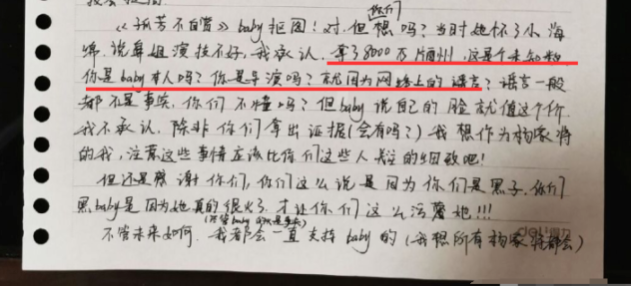 《孤芳不自赏》baby抠图！对.但你们想吗？当时她怀了小海
绵.说毕姐演技不好,我承认.拿了8000万片酬.这是个未知数
你是baby本人吗？你是导演吗？就因为网络上的谣言？谣言一般
都不是事实,你们不懂吗？但baby说自己的脸就值这个价.
我不承认.除非你们拿出证据(会有吗？)我想作为杨家将
的我,注意这些事情应该比你们这些人关注的细致吧！
但还是感谢你们,你们这么说是因为你们是黑子.你们
黑baby是因为她真的很火了.才让你们这么污蔑她!!!
不管未来如何.我都会一直支持baby的(我想所有杨家将都会)